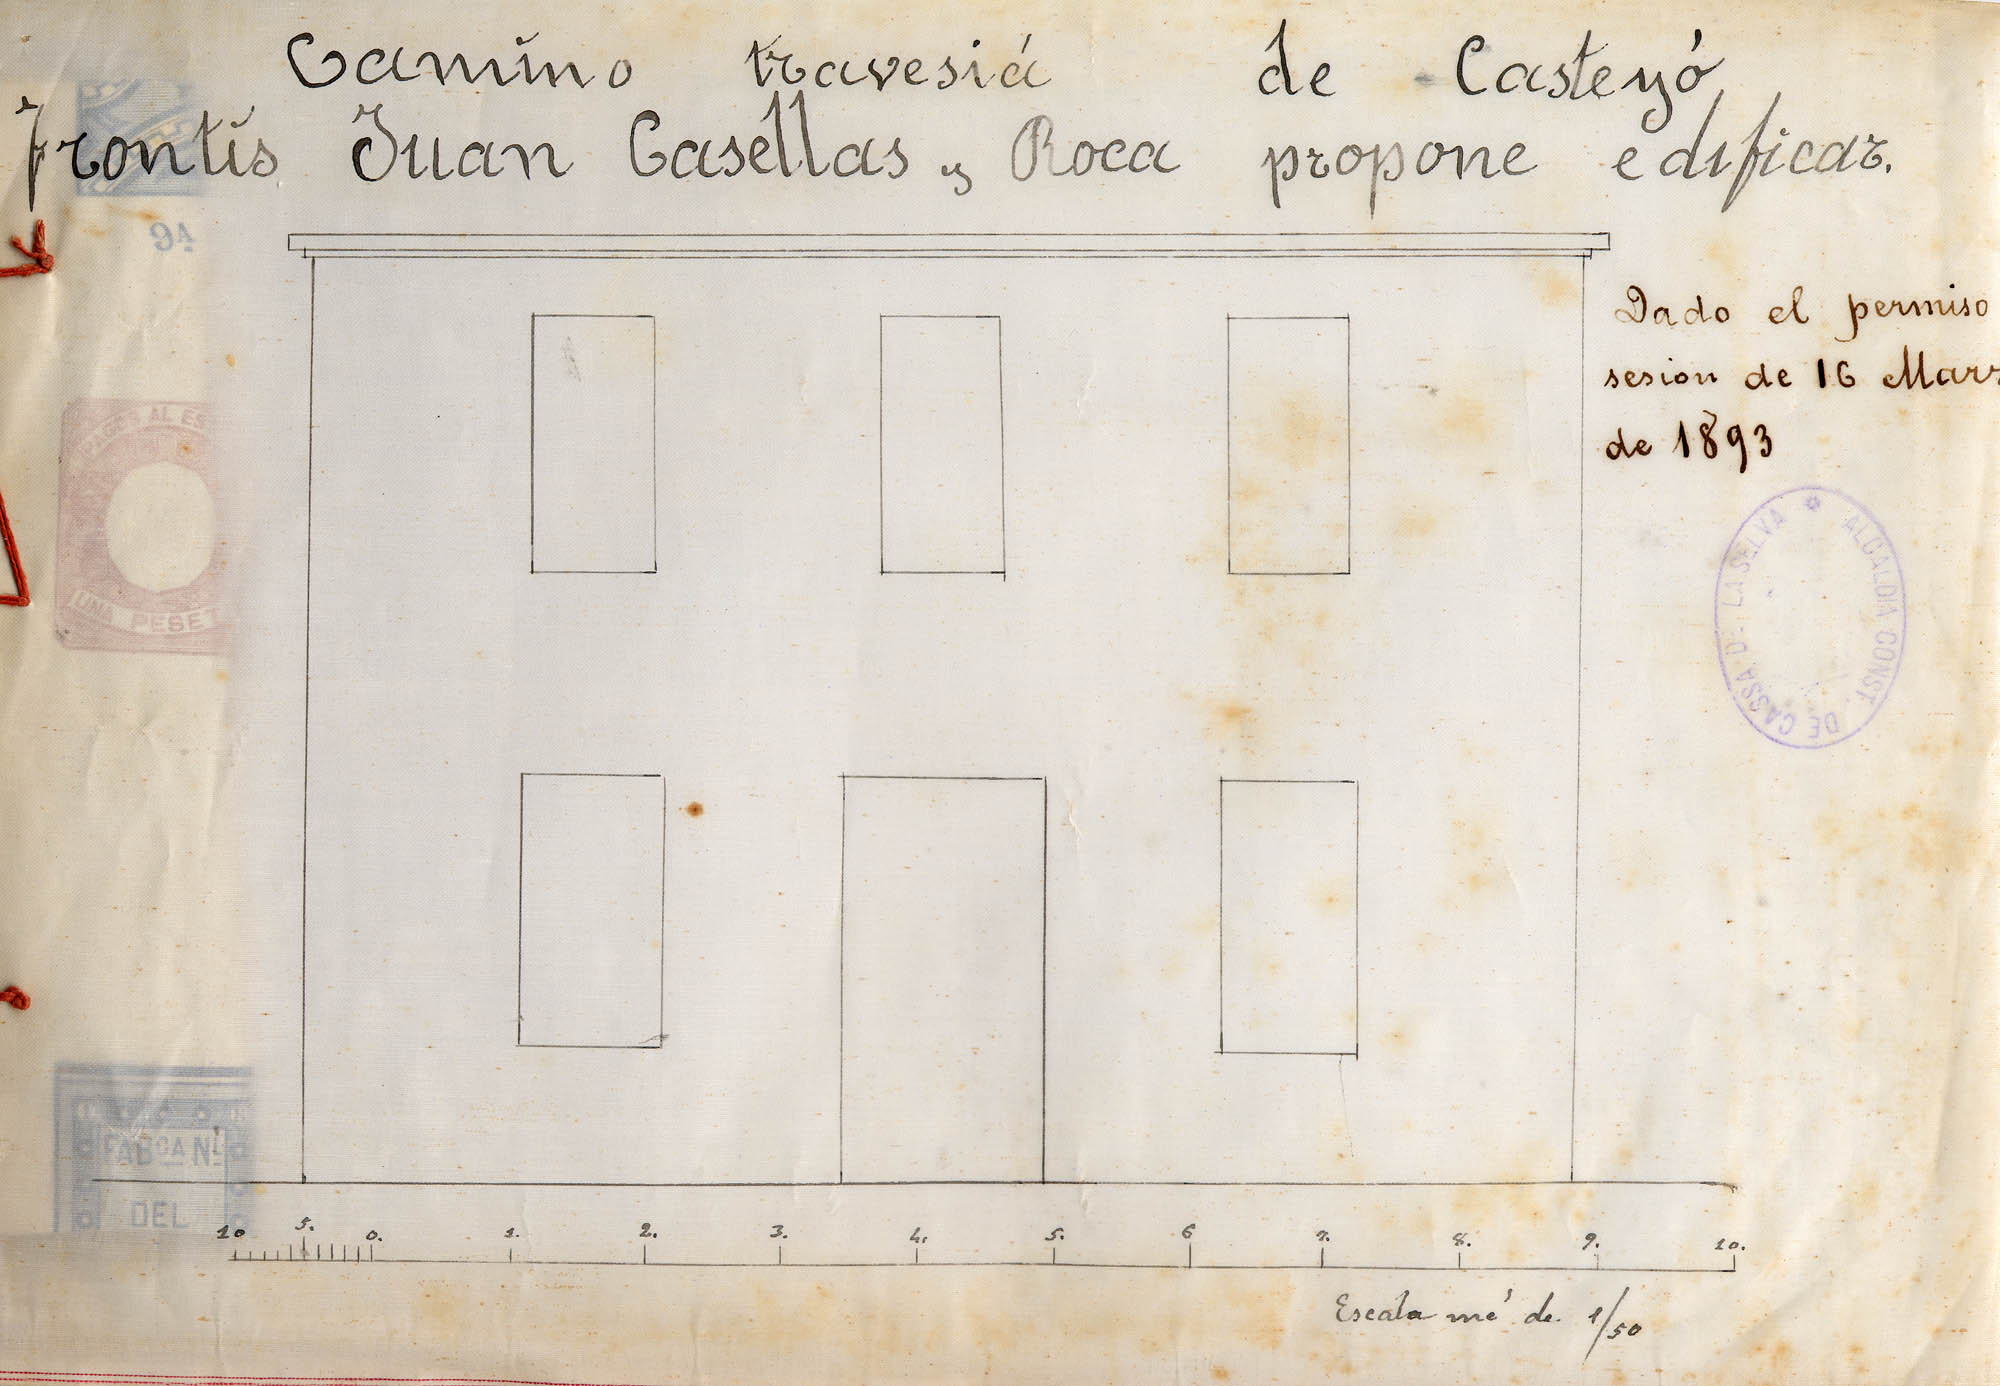 Camino travesiá de Casteyó
Frontis Juan Casellas y Roca propone edificar.
9ª
Dado el permiso
sesion de 16 Marz
de 1893
PAGOS AL ES
UNA PESET
ALCALDIA CONST. DE CASSA DE LA SELVA
FABCA NL
DEL
10 5. 0. 1. 2. 3. 4. 5. 6 7. 8. 9. 10.
Escala mé de 1/50